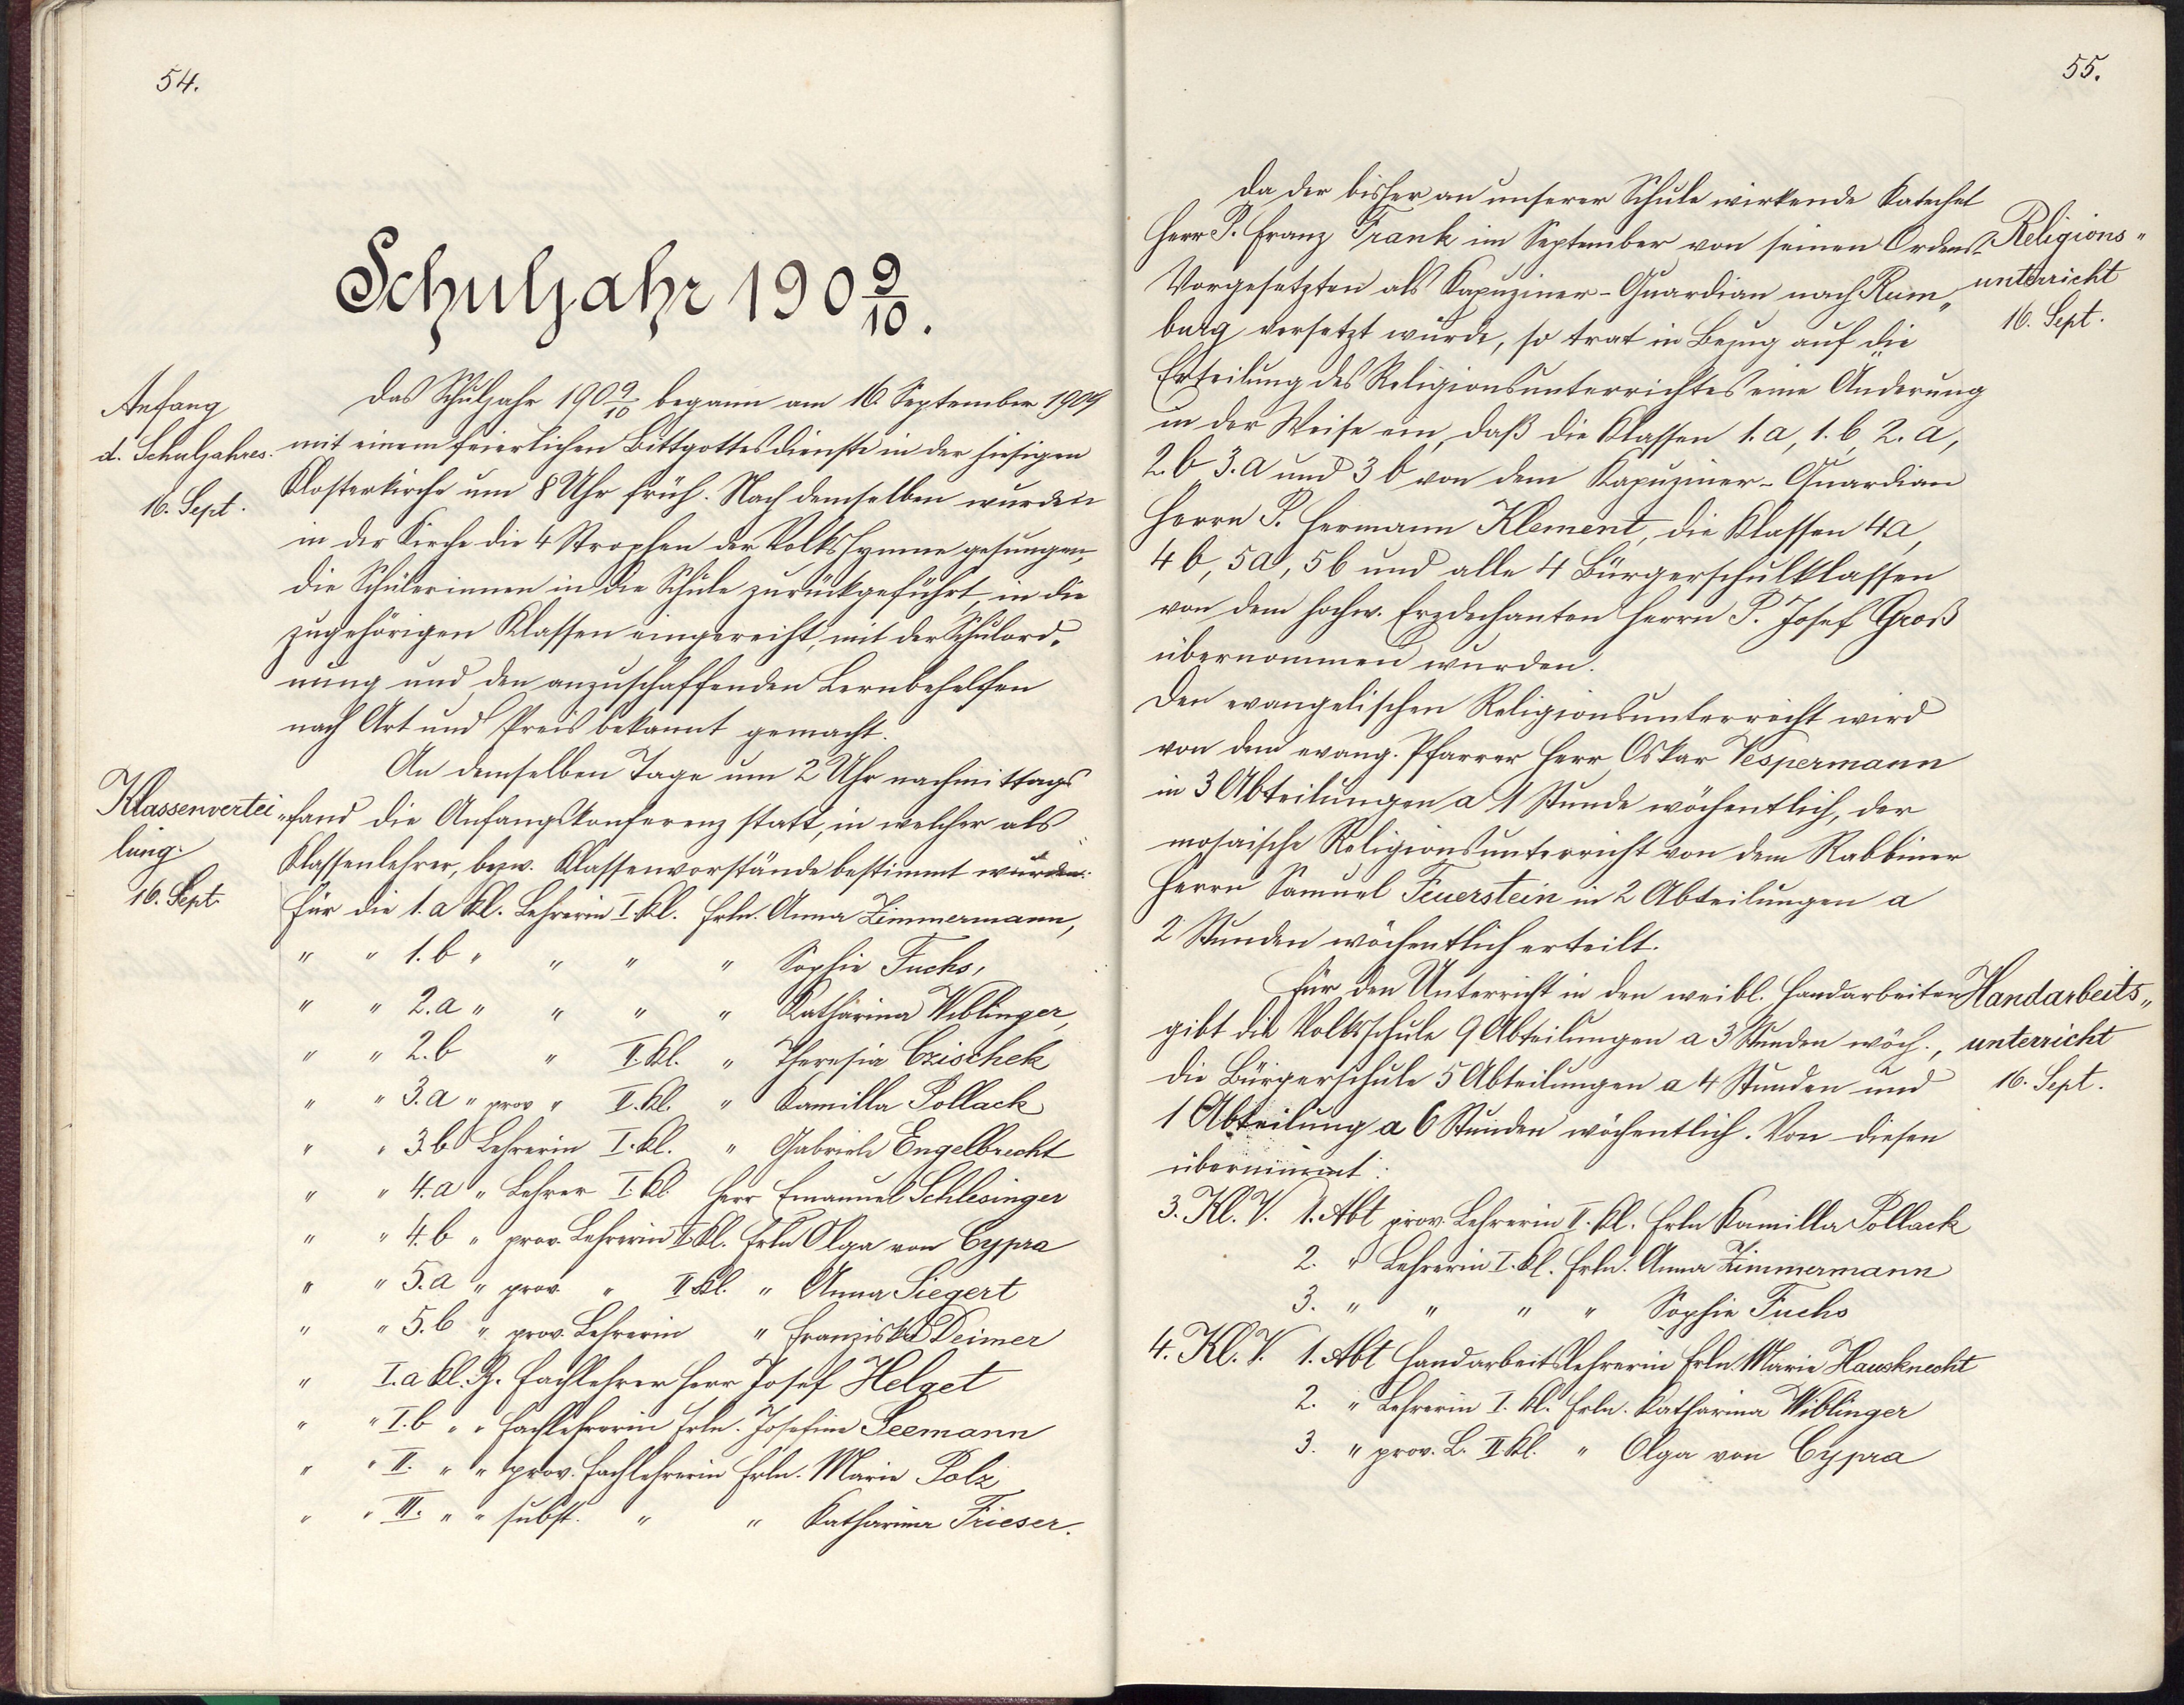 54.
Schuljahr 1909/10.
Anfang
d. Schuljahres.
16. Sept.
Das Schuljahr 1909/10 begann am 16. September 1909
mit einem feierlichen Bittgottesdienste in der hiesigen
Klosterkirche um 8 Uhr früh. Nach demselben wurden
in der Kirche die 4 Strophen der Volkshymne gesungen,
die Schülerinnen in die Schule zurückgeführt, in die
zugehörigen Klassen eingereiht, mit der Schulord-
nung und den anzuschaffenden Lernbehelfen
nach Art und Preis bekannt gemacht.
Klassenvertei-
lung.
16. Sept.
An demselben Tage um 2 Uhr nachmittags
fand die Anfangskonferenz statt, in welcher als
Klassenlehrer, bezw. Klassenvorstände bestimmt wurden:
Für die 1. a Kl. Lehrerin I. Kl. Frln. Anna Zimmermann,
" " 1. b " " " " Sophie Fuchs,
" " 2. a " " " " Katharina Wiblinger,
" " 2. b " II. Kl. " Theresia Czischek
" " 3. a " prov " II. Kl. " Kamilla Pollack
" " 3 b Lehrerin I. Kl. " Gabriele Engelbrecht
" " 4. a " Lehrer I. Kl. Herr Emanuel Schlesinger
" " 4. b " prov. Lehrerin II. Kl. Frln Olga von Cypra
" " 5. a " prov. " II Kl. " Anna Siegert
" " 5. b " prov. Lehrerin " Franziska Deimer
" I. a Kl. B. Fachlehrer Herr Josef Helget
" " I. b " " Fachlehrerin Frln. Josefine Seemann
" " II. " " prov. Fachlehrerin Frln. Marie Polz
" " III. " " subst. " " Katharina Frieser.
55.
Da der bisher an unserer Schule wirkende Katechet
Herr P. Franz Frank im September von seinen Ordens-
Vorgesetzten als Kapuziner-Guardian nach Rum-
burg versetzt wurde, so trat in Bezug auf die
Erteilung des Religionsunterrichtes eine Änderung
in der Weise ein, daß die Klassen 1. a, 1. b, 2. a,
2. b, 3. a und 3 b von dem Kapuziner-Guardian
Herrn P. Hermann Klement, die Klassen 4a,
4 b, 5a, 5b und alle 4 Bürgerschulklassen
von dem hochw. Erzdechanten Herrn P. Josef Groß
übernommen wurden.
Den evangelischen Religionsunterricht wird
von dem evang. Pfarrer Herr Oskar Vespermann
in 3 Abteilungen a 1 Stunde wöchentlich, der
mosaische Religionsunterricht von dem Rabbiner
Herrn Samuel Feuerstein in 2 Abteilungen a
2 Stunden wöchentlich erteilt.
Religions-
unterricht
16. Sept.
Für den Unterricht in den weibl. Handarbeiten
gibt die Volksschule 9 Abteilungen a 3 Stunden wöch.,
die Bürgerschule 5 Abteilungen a 4 Stunden und
1 Abteilung a 6 Stunden wöchentlich. Von diesen
übernimmt:
Handarbeits-
unterricht
16. Sept.
3. Kl. V. 1. Abt prov. Lehrerin II. Kl. Frln Kamilla Pollack
2. " Lehrerin I. Kl. Frln. Anna Zimmermann
3. " " " " Sophie Fuchs
4. Kl. V. 1. Abt Handarbeitslehrerin Frln. Marie Hausknecht
2. " Lehrerin I. Kl. Frln. Katharina Wiblinger
3. " prov. L. II. Kl. " Olga von Cypra